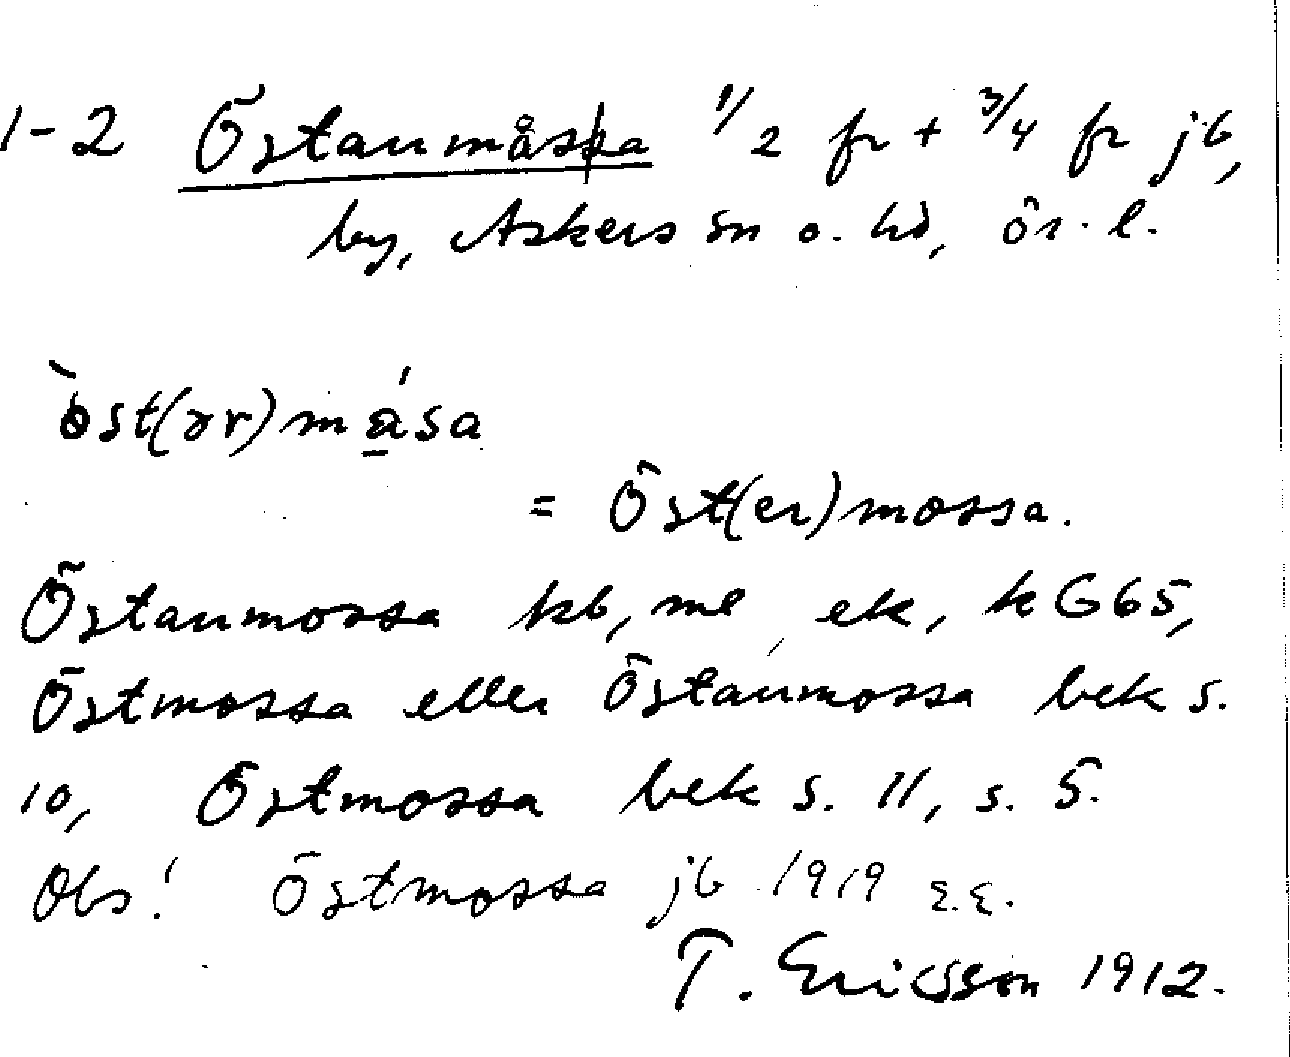 1-2 Östanmåssa 1/2 fr + 3/4 fr jb,
by, Askers sn o. hd, ör. l.
òst(ər)måsa
= Öst(er)mossa.
Östanmossa kb, ml, ek, k G65,
Östmossa eller Östanmossa bek s.
10, Östmossa bek s. 11, s. 5.
Obs! Östmossa jb 1919 E.E.
T. Ericsson 1912.